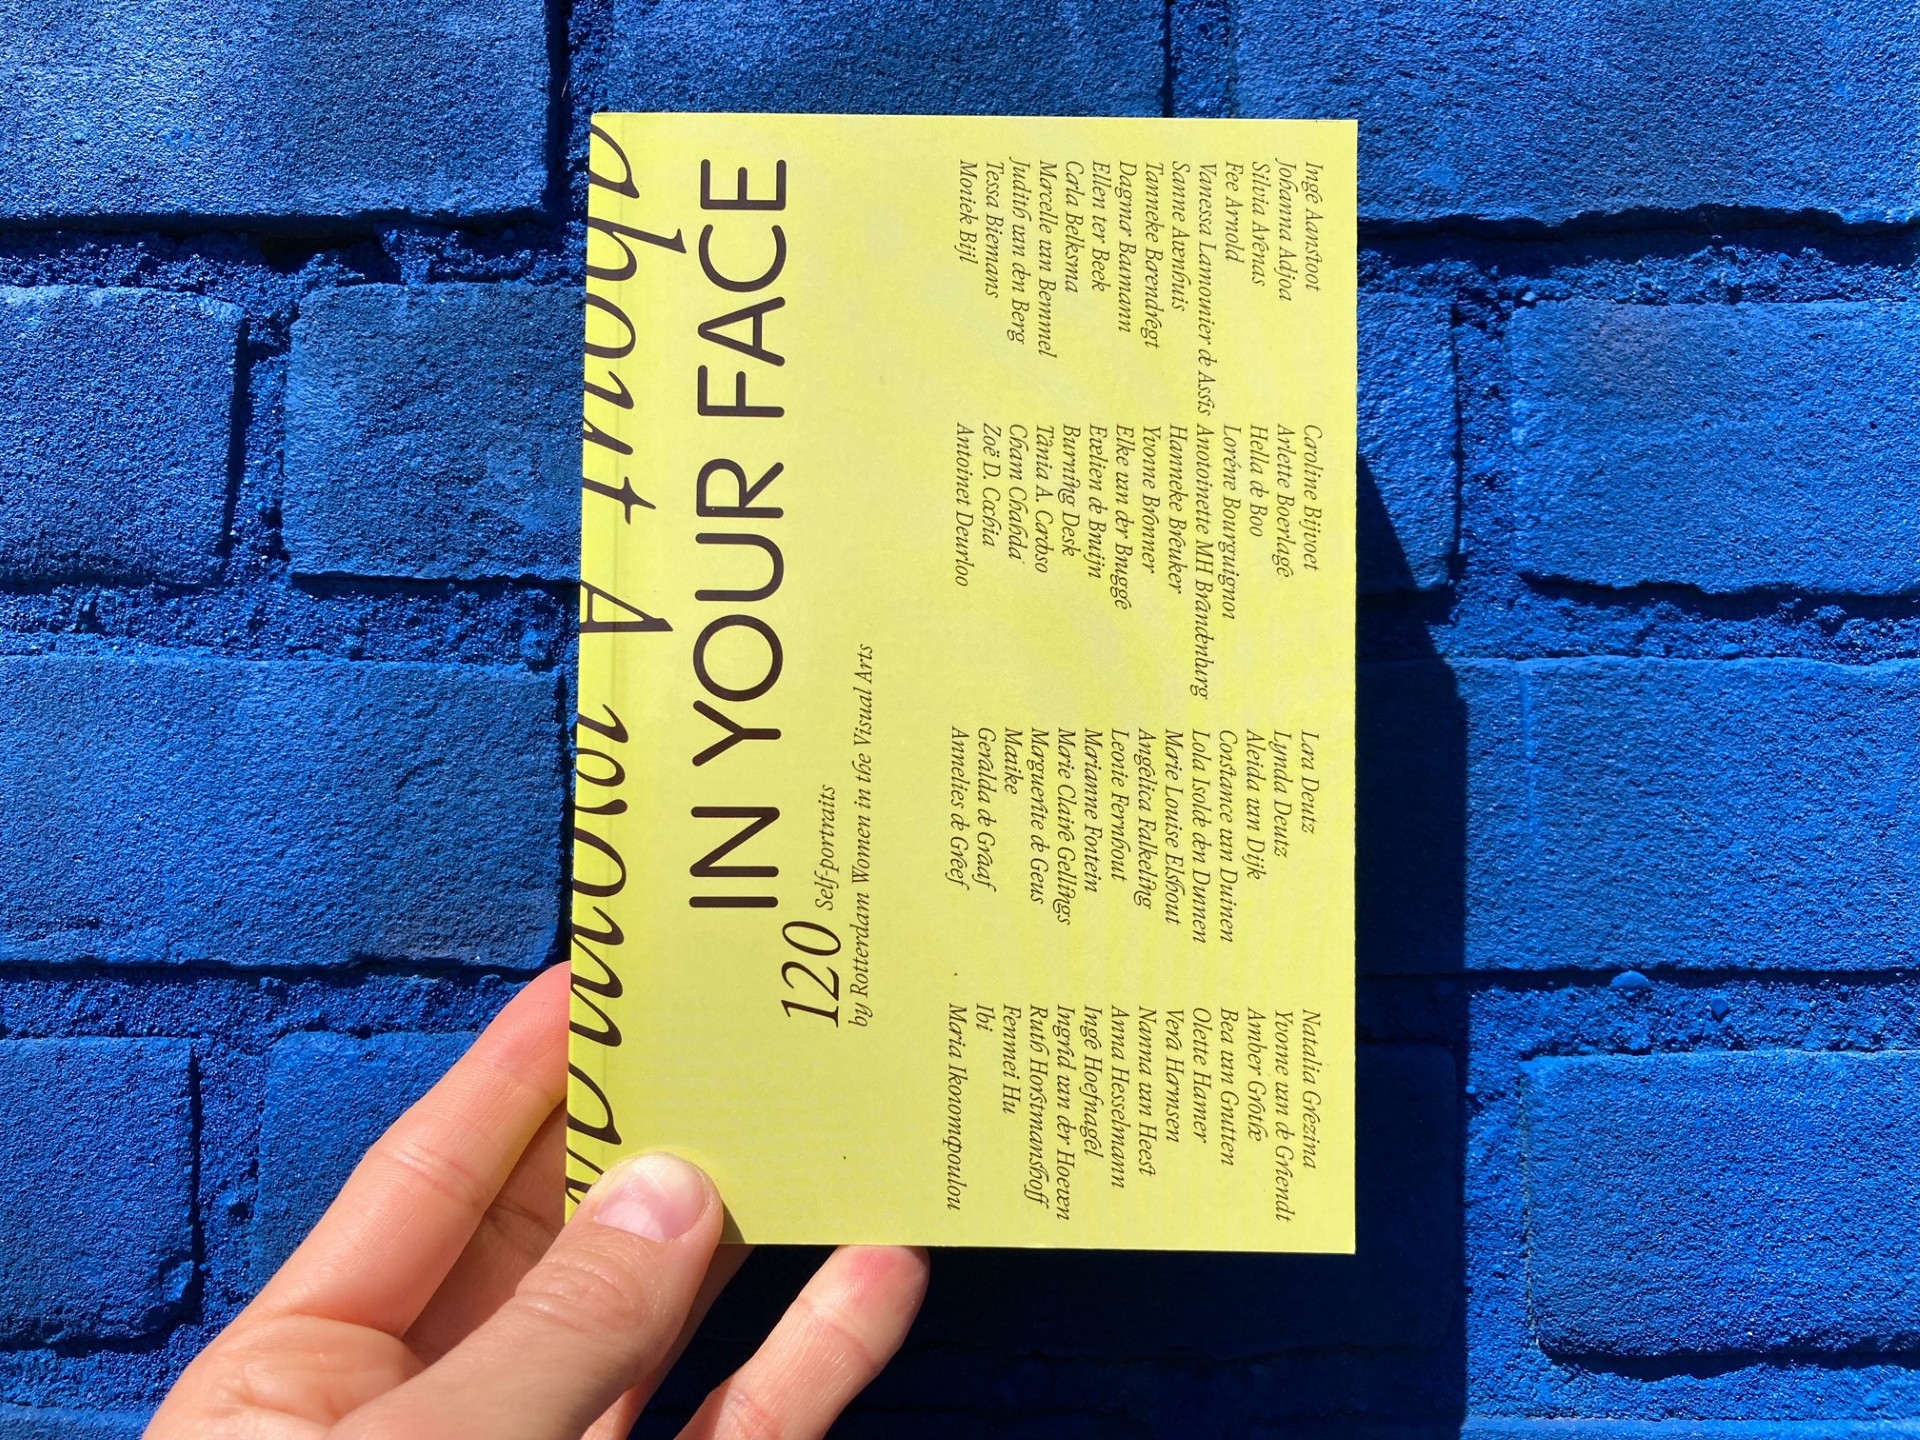 about A woman
IN YOUR FACE
120 Self-portraits
by Rotterdam Women in the Visual Arts
Inge Aanstoot
Johanna Adjoa
Silvia Arenas
Fee Arnold
Vanessa Lamonier de Assis
Sanne Avenhuis
Tanneke Barendregt
Dagmar Baumann
Ellen ter Beek
Carla Bekksma
Marcelle van Bemmel
Judith van den Berg
Tessa Biemans
Moniek Bijl
Caroline Bijvoet
Arlette Boerlage
Hella de Boo
Lorène Bourguignon
Anotoinette MH Brandenburg
Hanneke Breuker
Yvonne Bronner
Elke van der Brugge
Evelien de Bruijn
Burning Desk
Tânia A. Cardoso
Cham Chahda
Zoë D. Cochia
Antoinet Deurloo
Lara Deutz
Lynda Deutz
Aleida van Dijk
Constance van Duinen
Lola Isolde den Dunnen
Marie Louise Elshout
Angelica Falkeling
Leonie Fernhout
Marianne Fotein
Marie Claire Gellings
Marguerite de Geus
Maike
Geralda de Graaf
Annelies de Greef
Natalia Grezina
Yvonne van de Griendt
Amber Grothe
Bea van Gnutten
Olette Hamer
Vera Harmsen
Nanna van Heest
Anna Hesselmann
Inge Hoefnagel
Ingrid van der Hoeven
Ruth Horstmanshoff
Fenmei Hu
Ibi
Maria Ikonomopoulou